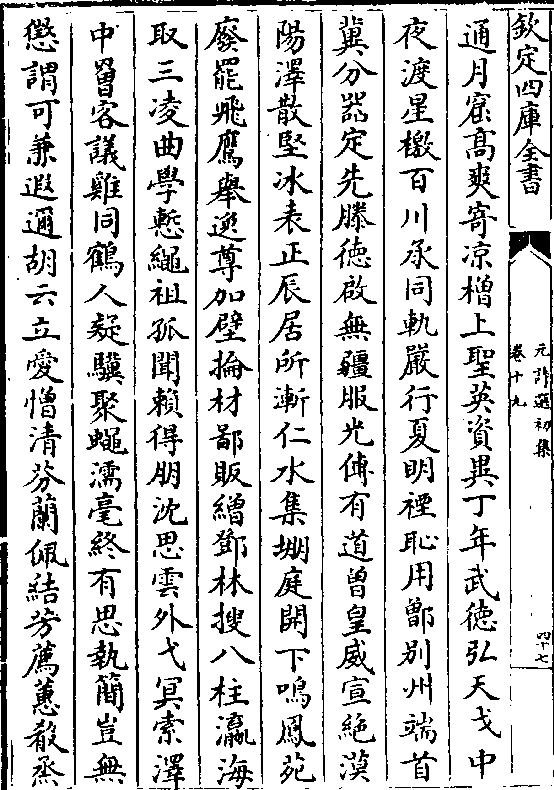 欽定四庫全書
元詩選初集
卷十九
四十七
通月窟髙爽寄凉橧上聖英資異丁年武徳弘天戈中
夜渡星檄百川承同軌嚴行夏明禋恥用鄫别州端首
冀分器定先滕徳啟無疆服光傳有道曽皇威宣絶漠
陽澤散堅冰表正辰居所漸仁水集堋庭開下鳴鳳苑
廢罷飛鷹舉逆尊加壁掄材鄙販繒鄧林搜八柱瀛海
取三凌曲學慙繩祖孤聞賴得朋沈思雲外弋冥索澤
中罾客議雞同鶴人疑驥聚蠅濡毫終有思執簡豈無
懲謂可兼遐邇胡云立愛憎清芬蘭佩結芳薦蕙殽烝